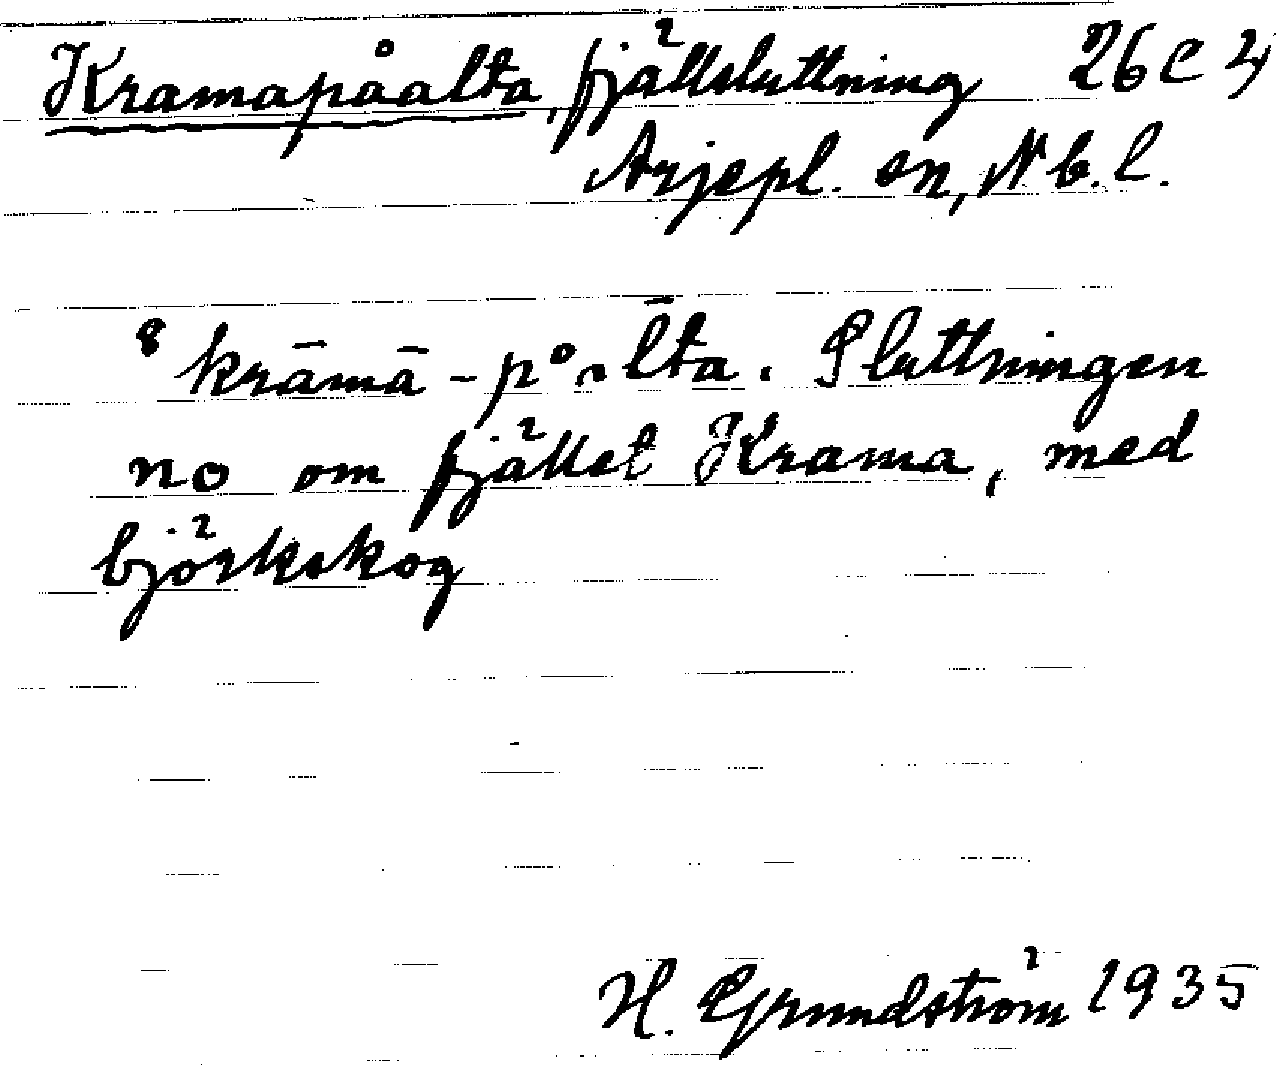 Kramapåalta, fjällsluttning 26 C 4
Arjepl. sn, Nb.l.
krāmā - pḁ̊l̄ta. Sluttningen
no om fjället Krama, med
björkskog
H. Grundström 1935